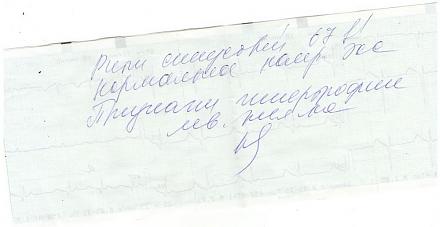 Ритм синусовый 67 11
Нормальное напр. ЭОС
Признаки гипертрофии
лев. жел-ка